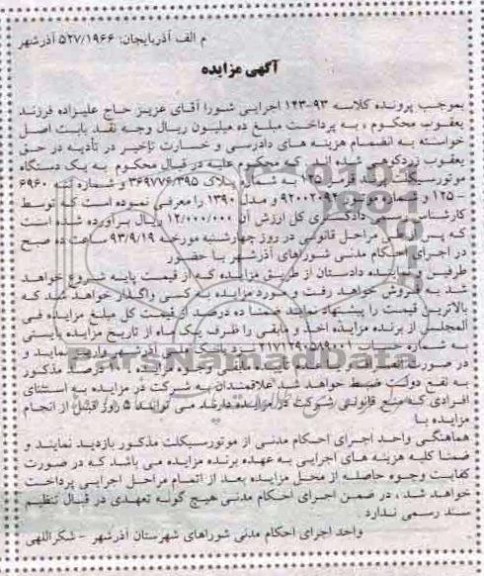 م الف آذربایجان: ۵۲۷/۱۹۶۶ آذرشهر
آگهی مزایده
بموجب پرونده کلاسه ۹۳-۱۴۳ اجرایی شورا آقای عزیز حاج علیزاده فرزند
یعقوب محکوم، به پرداخت مبلغ ده میلیون ریال وجه نقد بابت اصل
خواسته به انضمام هزینه های دادرسی و خسارت تاخیر در تأدیه در حق
یعقوب زردکوهی شده اند. که محکوم علیه در قبال محکوم به یک دستگاه
موتورسیکلت ۱۲۵ به شماره پلاک ۳۶۹۷۷۶/۳۹۵ و شماره تنه ۶۹۶۰
-۱۲۵ و شماره موتور ۹۲۰۰۲۰۹۲ و مدل ۱۳۹۰ را معرفی نموده است که توسط
کارشناس رسمی دادگستری کل ارزش آن ۱۲/۰۰۰/۰۰۰ ریال برآورده شده است
که پس از طی مراحل قانونی در روز چهارشنبه مورخه ۹۳/۹/۱۹ ساعت ده صبح
در اجرای احکام مدنی شوراهای آذرشهر با حضور
طرفین و نماینده دادستان از طریق مزایده که از قیمت پایه شروع خواهد
شد به فروش خواهد رفت و مورد مزایده به کسی واگذار خواهد شد که
بالاترین قیمت را پیشنهاد نماید ضمنا ده درصد از قیمت کل مبلغ مزایده فی
المجلس از برنده مزایده اخذ و مابقی را ظرف یک ماه از تاریخ مزایده بایستی
به شماره حساب ۲۱۷۱۲۹۰۵۱۹۰۰۱ نزد بانک ملی آذرشهر واریز نماید و
در صورت انصراف برنده مزایده مابقی وجه ده درصد مذکور
به نفع دولت ضبط خواهد شد علاقمندان به شرکت در مزایده به استثنای
افرادی که منع قانونی شرکت در مزایده دارند می توانند ۵ روز قبل از انجام
مزایده با
هماهنگی واحد اجرای احکام مدنی از موتورسیکلت مذکور بازدید نمایند و
ضمنا کلیه هزینه های اجرایی به عهده برنده مزایده می باشد که در صورت
کفایت وجوه حاصله از محل مزایده بعد از اتمام مراحل اجرایی پرداخت
خواهد شد، در ضمن اجرای احکام مدنی هیچ گونه تعهدی در قبال تنظیم
سند رسمی ندارد.
واحد اجرای احکام مدنی شوراهای شهرستان آذرشهر - شکراللهی